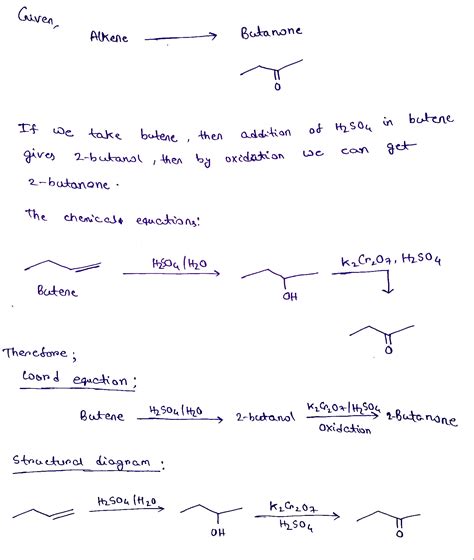 Given,
Alkene → Butanone
O
If we take butene, then addition of H2SO4 in butene
gives 2-butanol, then by oxidation we can get
2-butanone.
The chemical equations:
H2SO4/H2O
K2Cr2O7, H2SO4
Butene
OH
O
Therefore;
Word equation;
Butene H2SO4/H2O → 2-butanol K2Cr2O7/H2SO4 Oxidation → 2-Butanone
Structural diagram:
H2SO4/H2O
K2Cr2O7
H2SO4
OH
O